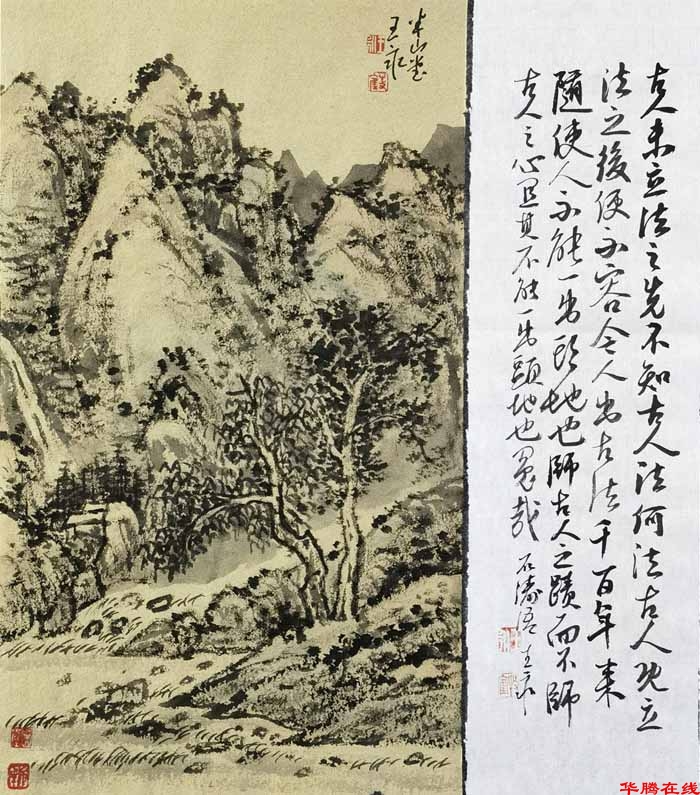 半山
王
古人未立法之先不知古人法何法古人既立
法之後便不容今人出古法千百年来
隨使人不能一出头地也師古人之蹟而不師
古人之心且其不能一出頭地也冤哉
石濤语 王
华腾在线